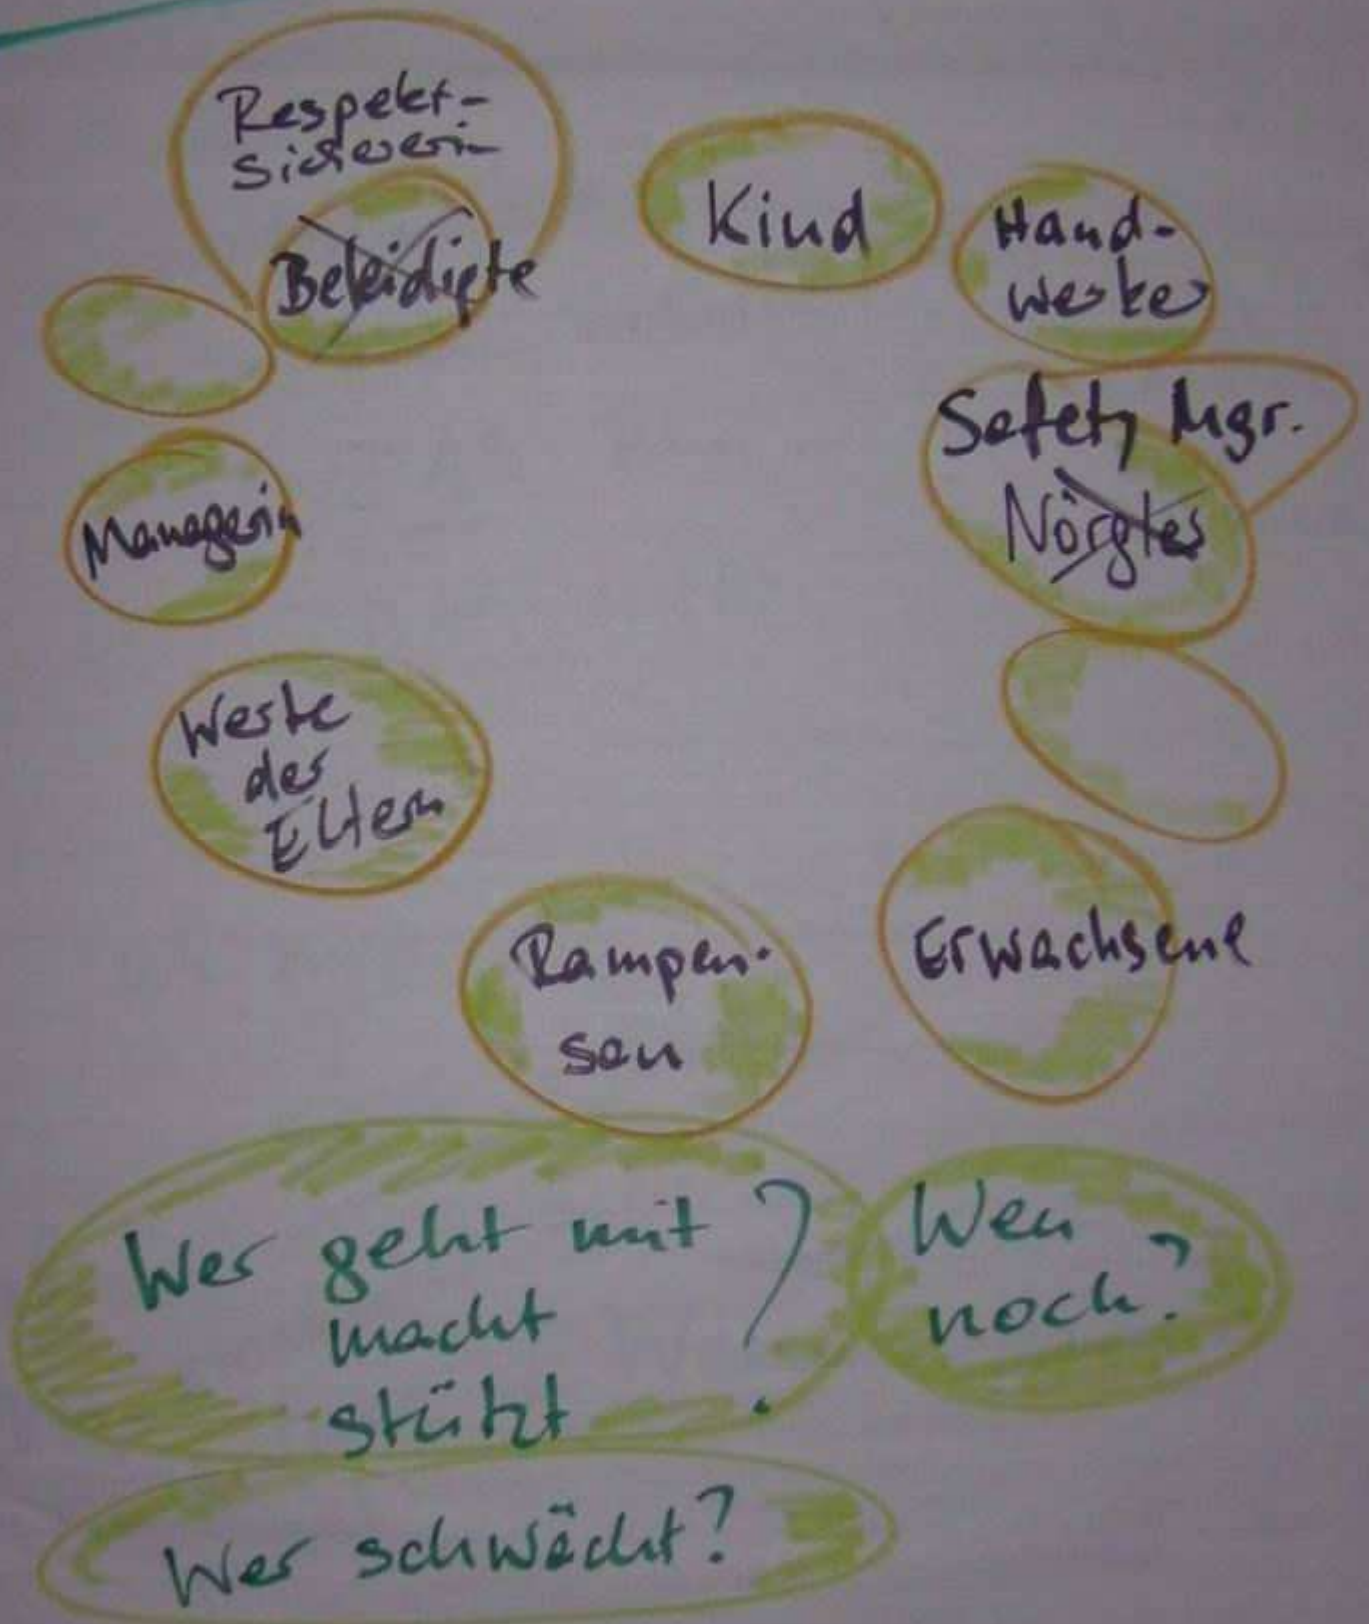 Respekt-
sicherin
Beleidigte
Kind
Hand-
werker
Safety Mgr.
Nörgler
Managerin
Werte
der
Eltern
Rampen-
sau
Erwachsene
Wer geht mit
macht
stützt ?
Wen
noch?
Wer schwächt?